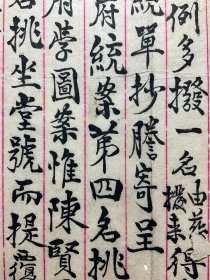 例多撥一名由蔬得
撥來
統單抄謄寄呈
府統案第四名挑
府學圖案惟陳賢
名挑坐堂號而提覆